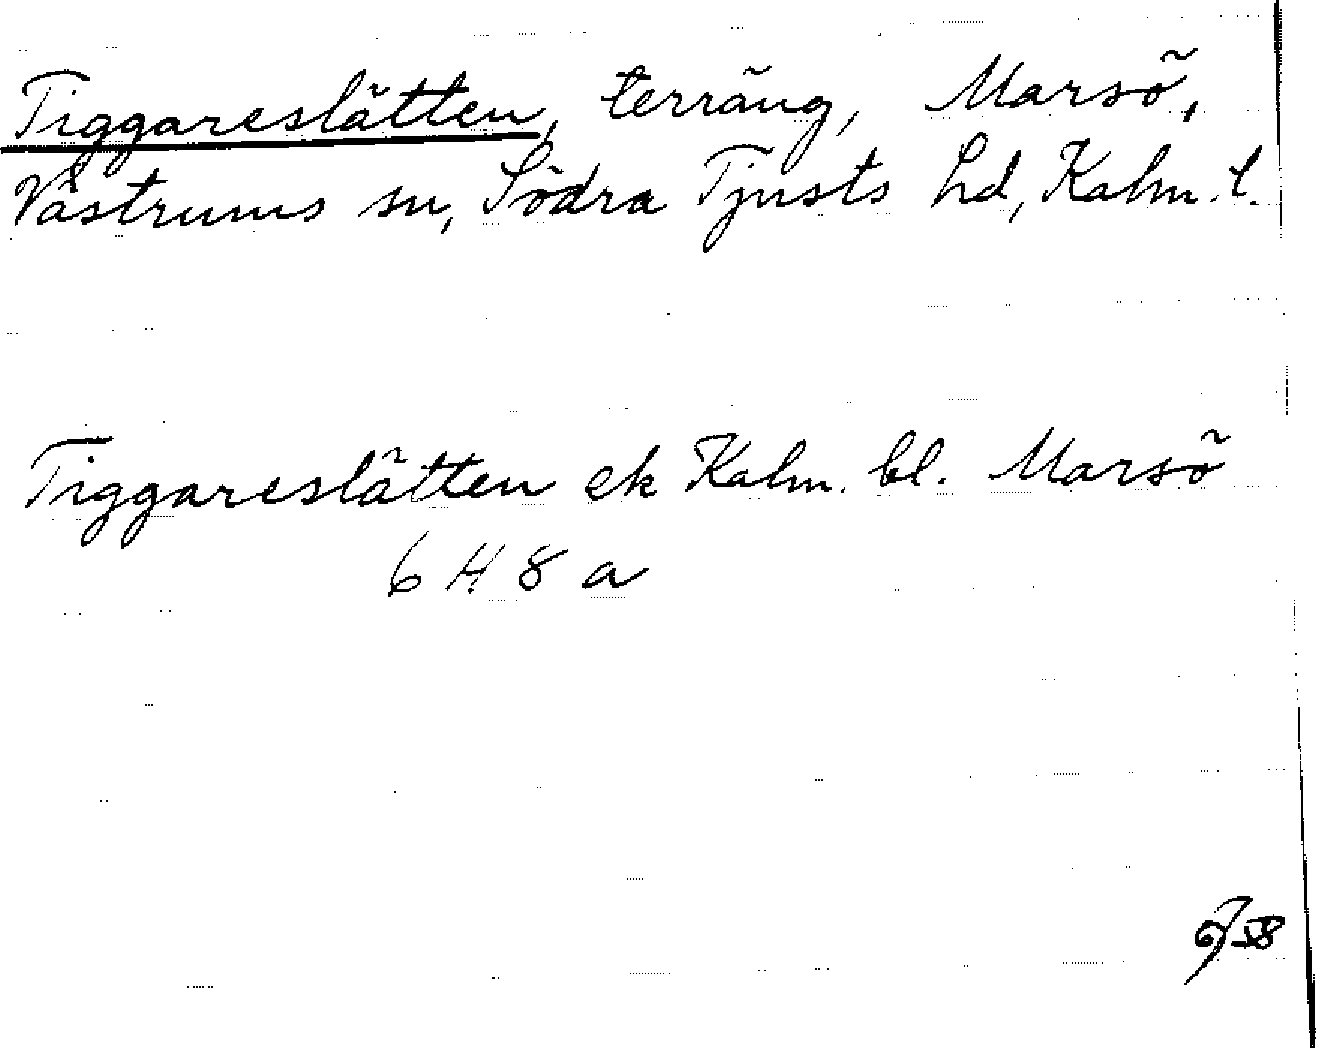 Tiggareslätten, terräng, Marsö,
Västrums sn, Södra Tjusts hd, Kalm. l.
Tiggareslätten ek Kalm. bl. Marsö
6 H 8 a